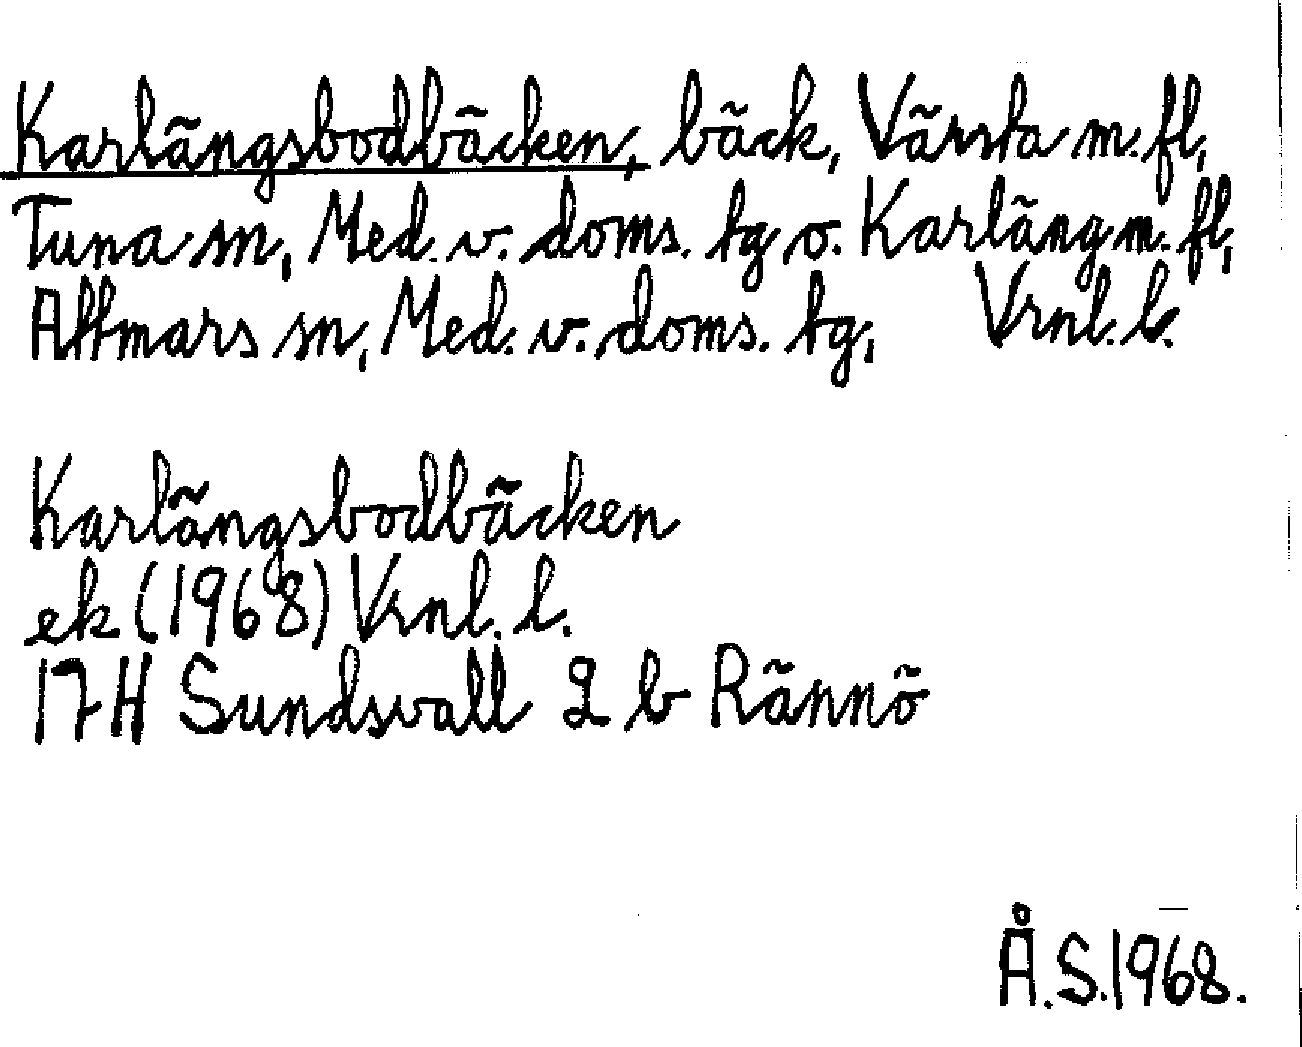 Karlängsbodbäcken, bäck, Värsta m. fl.,
Tuna sn, Med. v. doms. tg o. Karläng m. fl.,
Attmars sn, Med. v. doms. tg, Vrnl. l.
Karlängsbodbäcken
ek (1968) Vrnl. l.
17H Sundsvall 2 b Rännö
Å.S. 1968.